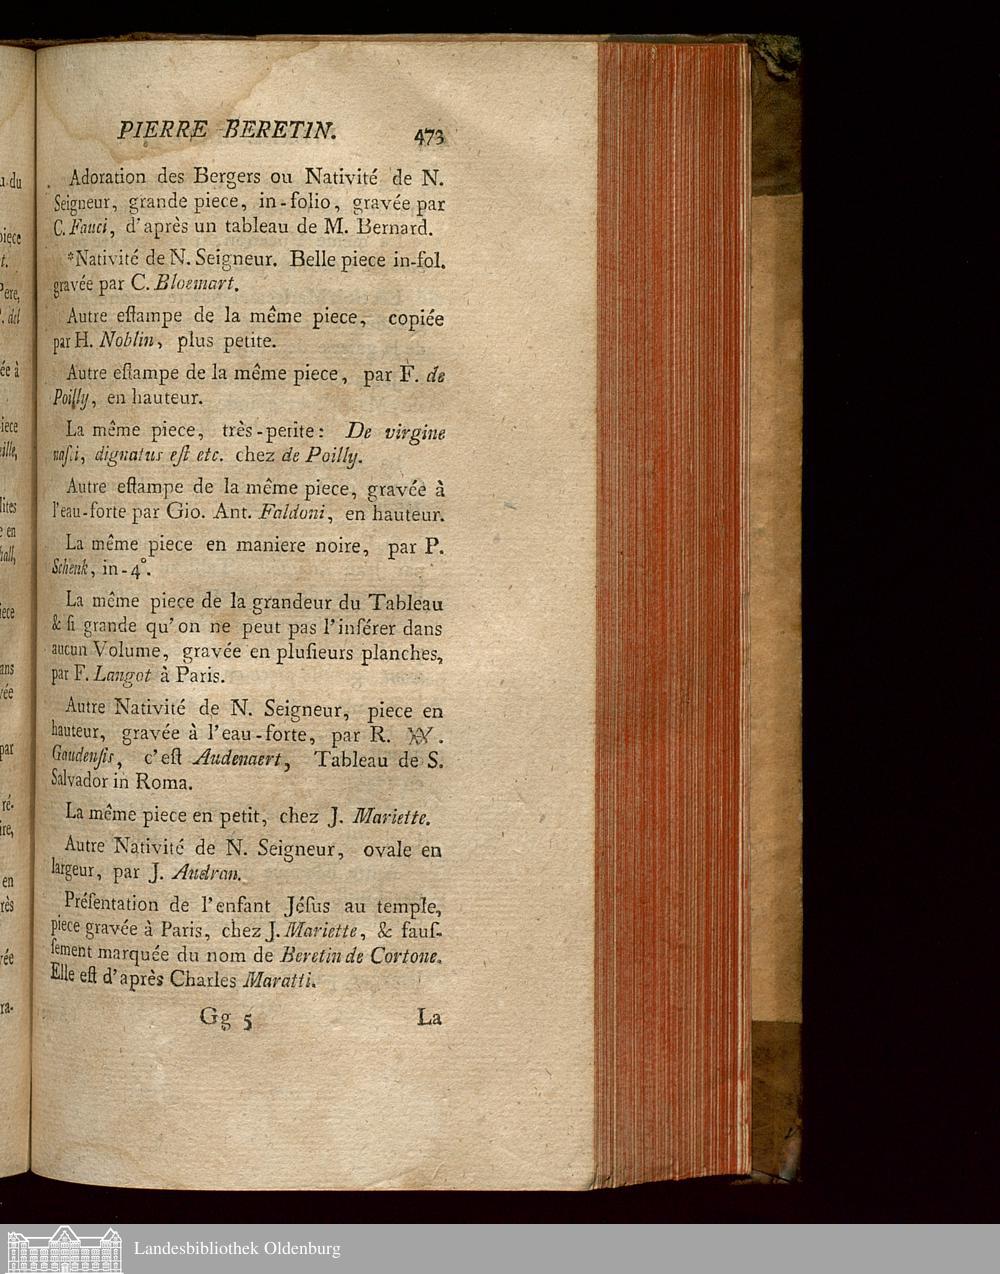 PIERRE BERETIN. 473
Adoration des Bergers ou Nativité de N.
Seigneur, grande piece, in-folio, gravée par
C. Fauci, d'après un tableau de M. Bernard.
*Nativité de N. Seigneur. Belle piece in-fol.
gravée par C. Bloemart.
Autre eſtampe de la même piece, copiée
par H. Noblin, plus petite.
Autre eſtampe de la même piece, par F. de
Poilly, en hauteur.
La même piece, très-petite: De virgine
naſci, dignatus eſt etc. chez de Poilly.
Autre eſtampe de la même piece, gravée à
l'eau-forte par Gio. Ant. Faldoni, en hauteur.
La même piece en maniere noire, par P.
Schenk, in-4°.
La même piece de la grandeur du Tableau
& ſi grande qu'on ne peut pas l'inférer dans
aucun Volume, gravée en pluſieurs planches,
par F. Langot à Paris.
Autre Nativité de N. Seigneur, piece en
hauteur, gravée à l'eau-forte, par R. W.
Gaudenſis, c'eſt Audenaert, Tableau de S.
Salvador in Roma.
La même piece en petit, chez J. Mariette.
Autre Nativité de N. Seigneur, ovale en
largeur, par J. Audran.
Préſentation de l'enfant Jéſus au temple,
piece gravée à Paris, chez J. Mariette, & fauſ-
ſement marquée du nom de Beretin de Cortone.
Elle eſt d'après Charles Maratti.
Gg 5 La
Landesbibliothek Oldenburg